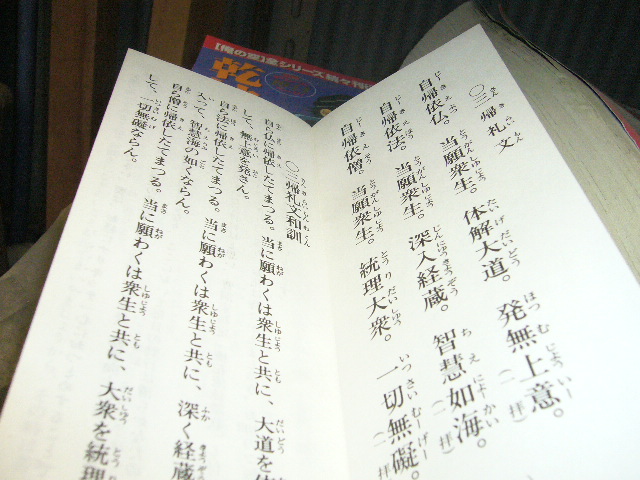 【俺の空】全シリーズ続々刊
〇三帰礼文
自帰依仏。当願衆生。体解大道。発無上意。(一拝)
自帰依法。当願衆生。深入経蔵。智慧如海。(一拝)
自帰依僧。当願衆生。統理大衆。一切無礙。(一拝)
〇三帰礼文和訓
自ら仏に帰依したてまつる。当に願わくは衆生と共に、大道を体
して、無上意を発さん。
自ら法に帰依したてまつる。当に願わくは衆生と共に、深く経蔵
入って、智慧海の如くならん。
自ら僧に帰依したてまつる。当に願わくは衆生と共に、大衆を統理
して、一切無礙ならん。